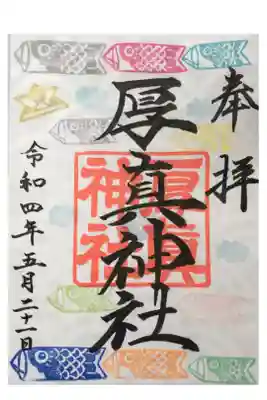 奉拝
厚真神社
厚眞神社
令和四年五月二十一日